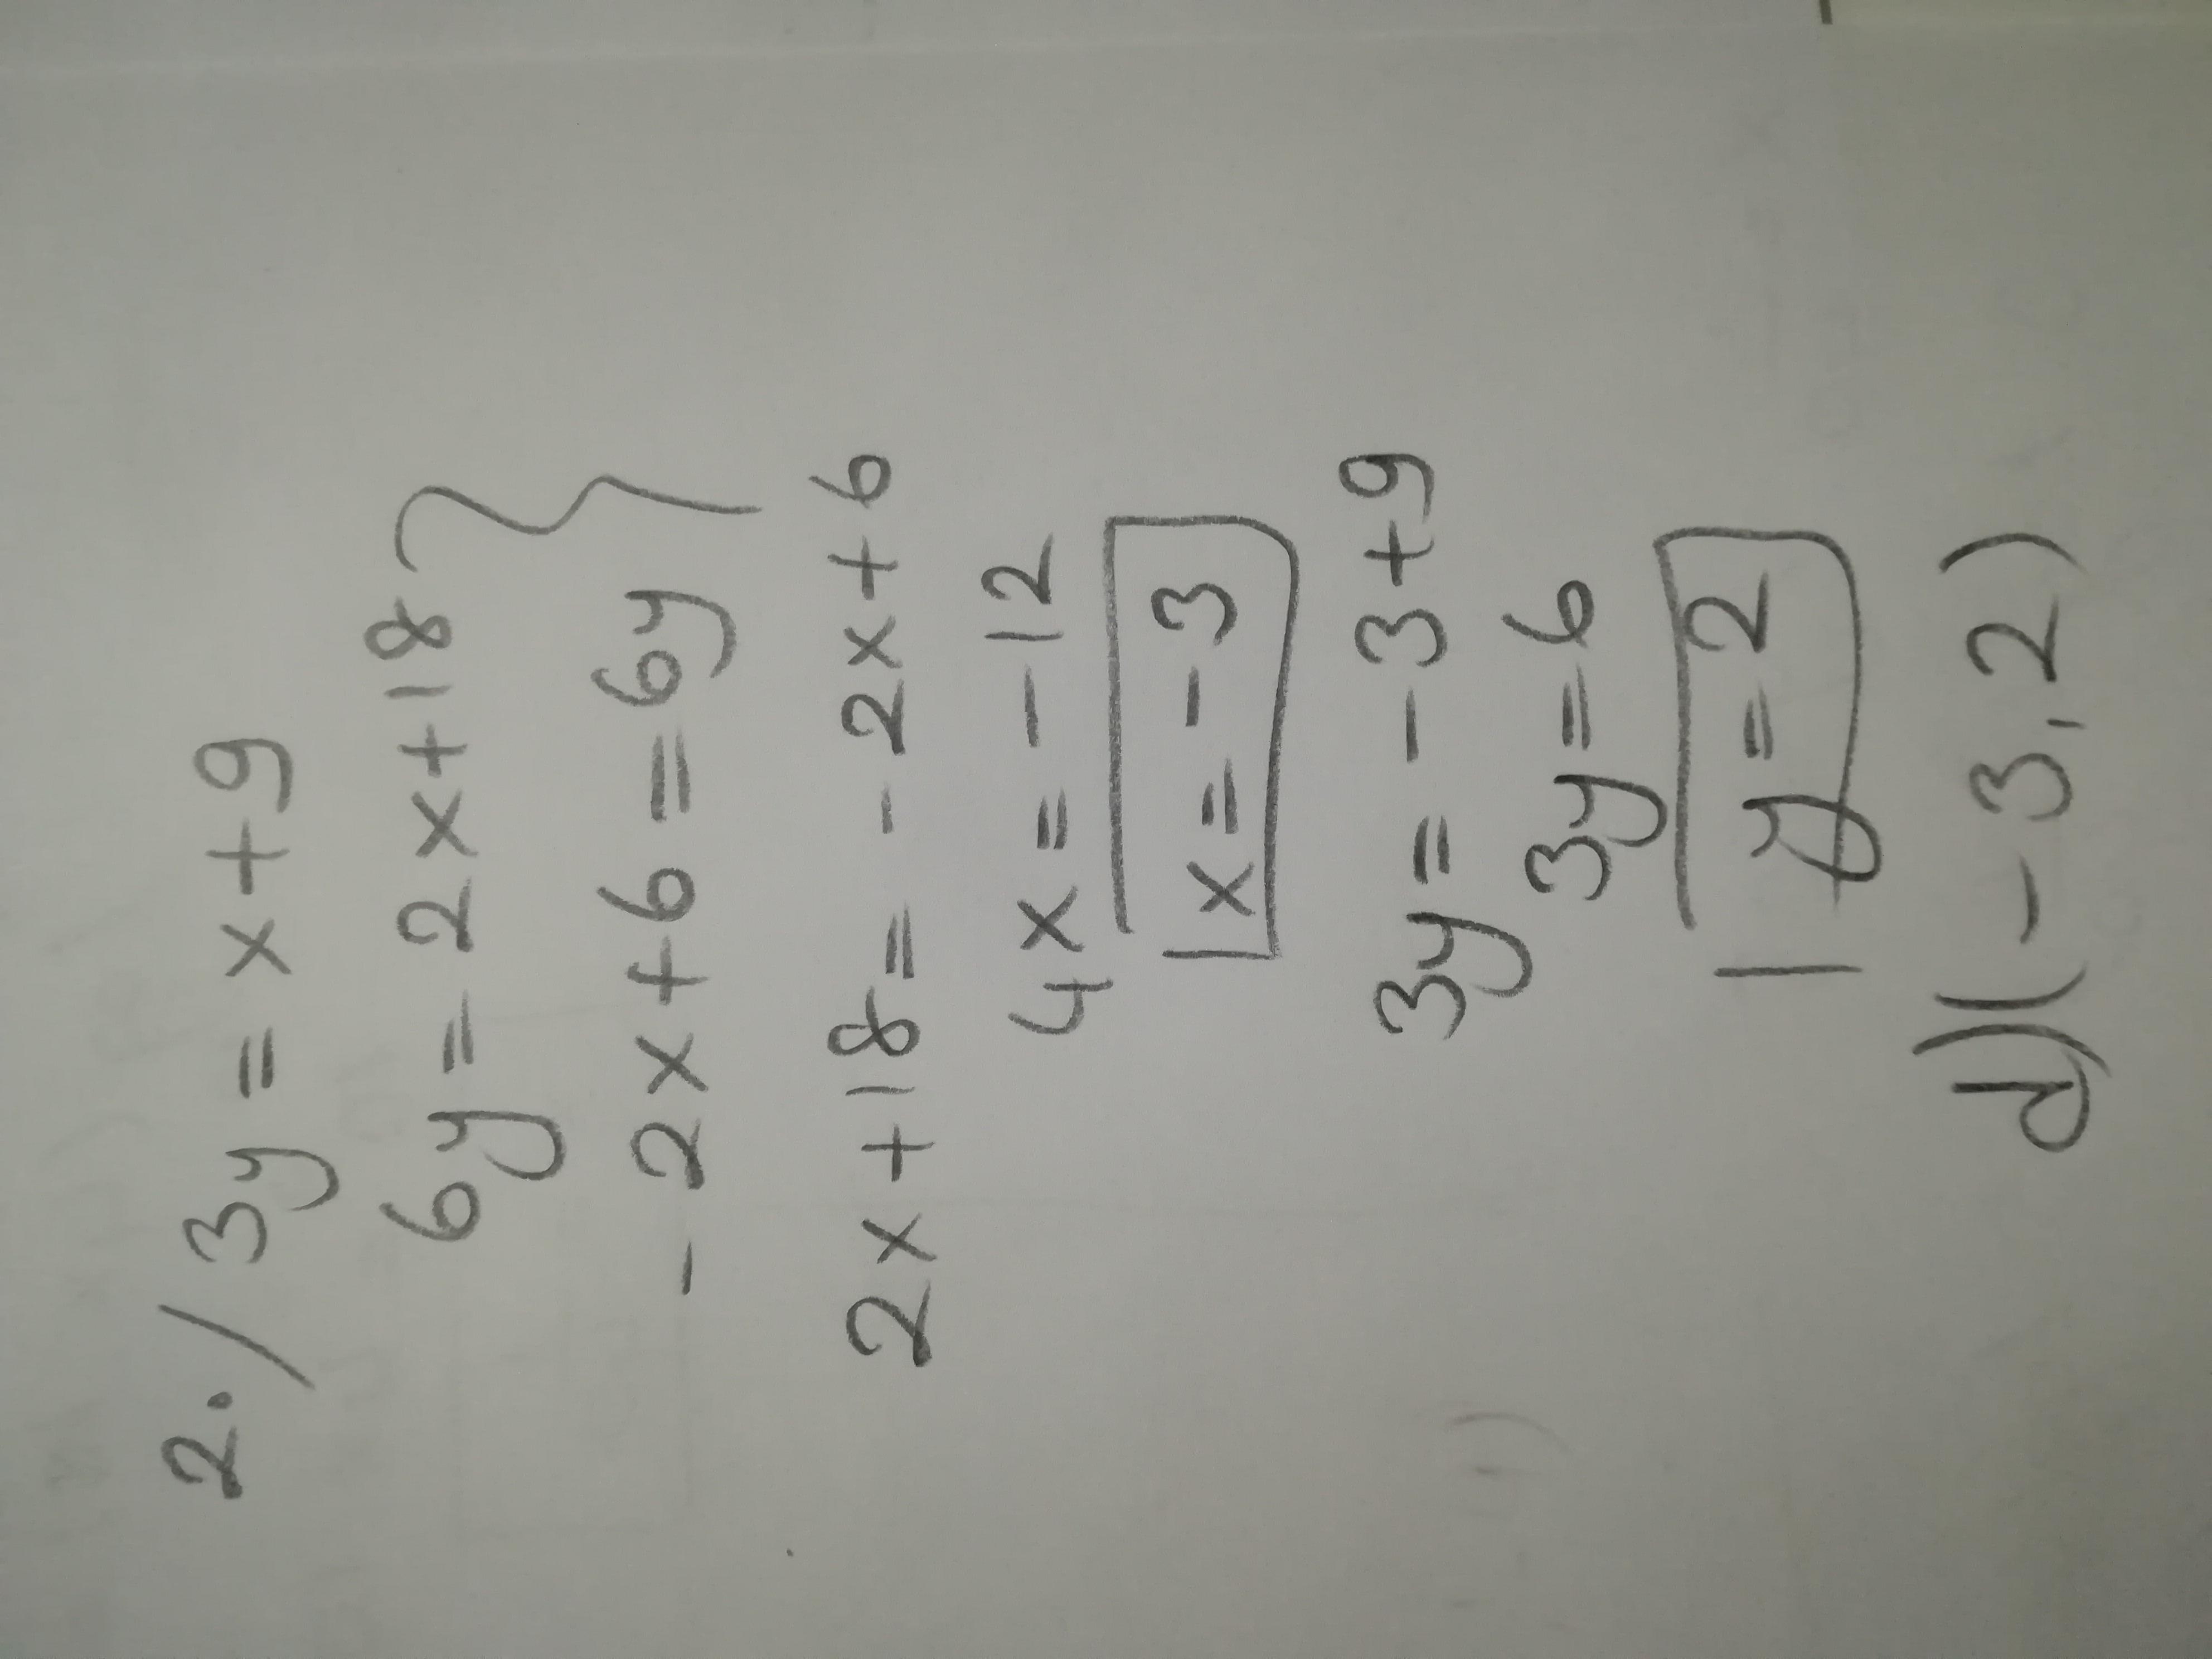 2·/ 3y = x+9
6y = 2x+18
-2x+6=6y
2x+18= -2x+6
4x = -12
x = -3
3y = -3+9
3y=6
y=2
d)(-3,2)